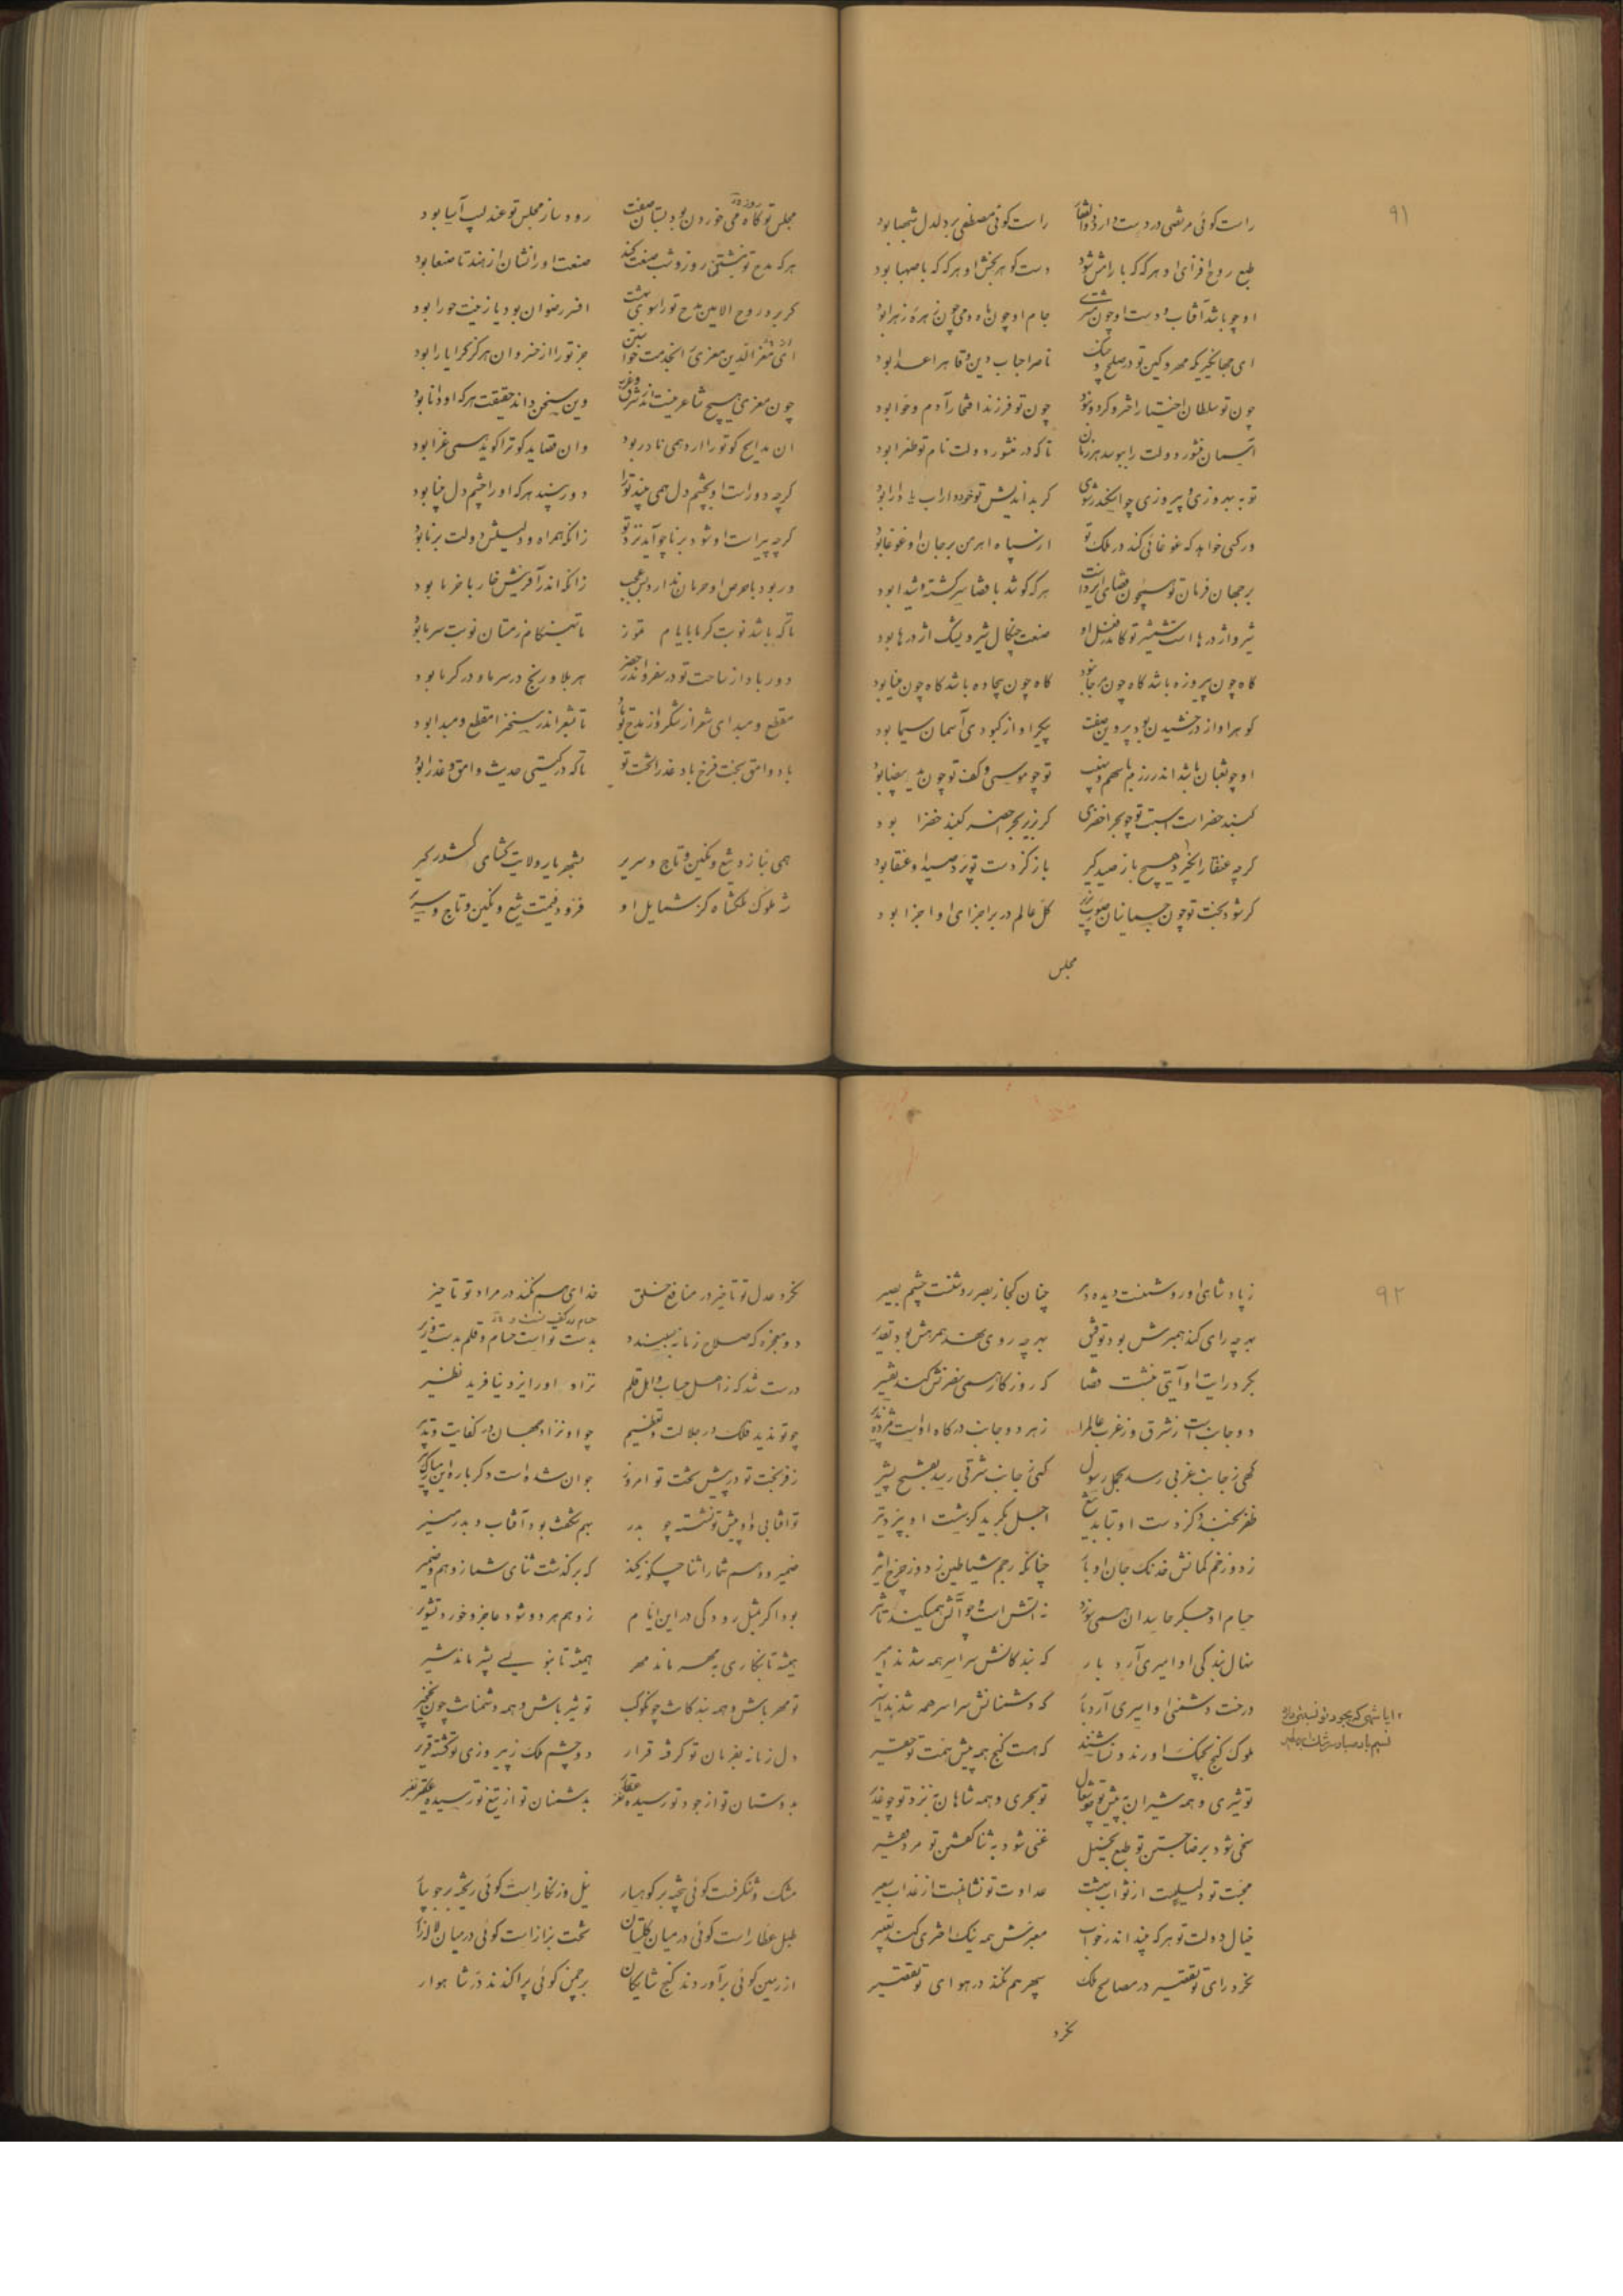 ۹۱
راست گوئی مرتضی در دست دارد ذوالفقار راست گوئی مصطفی بر دلدل شهبا بود
طبع روح افزای او هرگه که با رامش شود دست گوهر بخش او هرگه که با صهبا بود
او چو باشد آفتاب و دست او چون مشتری جام او چون ماه و می چون زهره زهرا بود
ای جهانگیری که مهر و کین تو در صلح و جنگ ناصر احباب دین و قاهر اعدا بود
چون تو سلطان اختیار اختر و گردون بود چون تو فرزند افتخار آدم و حوا بود
آسمان منشور دولت را ببوسد هر زمان تا که در منشور دولت نام تو طغرا بود
تو به بهروزی و پیروزی چو اسکندر شوی گر بداندیش تو خود داراب یا دارا بود
ور کسی خواهد که غوغائی کند در ملک تو از سپاه اهرمن بر جان او غوغا بود
بر جهان فرمان تو همچون قضای ایزد است هرکه کوشد با قضا سرگشته و شیدا بود
شیر و اژدرها است شمشیر تو کاندر فعل او صنعت چنگال شیر و یشک اژدرها بود
گاه چون پیروزه باشد گاه چون مرجان بود گاه چون بیجاده باشد گاه چون مینا بود
گوهر او از درخشیدن بود پروین صفت پیکر او از کبودی آسمان سیما بود
او چو ثعبان باشد اندر رزم با سهم و نهیب تو چو موسی و کف تو چون ید بیضا بود
گنبد خضرا است اسبت تو چو بحر اخضری کز زبر بحر اخضر گنبد خضرا بود
گرچه عنقا را نگیرد هیچ باز صیدگیر باز کز دست تو پرد صید او عنقا بود
گر شود بخت تو چون جسمانیان صورت پذیر کل عالم در بر اجزای او اجزا بود
مجلس
مجلس تو گاه می خوردن بود بستان صفت رودساز مجلس تو عندلیب آسا بود
هرکه مدح تو نبشتی روز و شب صنعت کند صنعت او را نشان از هند تا صنعا بود
گر برد روح الامین مدح تو را سوی بهشت افسر رضوان بود یا زینت حورا بود
ای معزالدین معزی را بخدمت خواستن جز تو را از خسروان هرگز کرا یارا بود
چون معزی هیچ شاعر نیست اندر شرق و غرب وین سخن داند حقیقت هرکه او دانا بود
آن مدایح کو تو را آرد همی نادر بود وان قصاید کو ترا گوید همی غرا بود
گرچه دور است او بچشم دل همی بیند تو را دور بیند هرکه او را چشم دل بینا بود
گرچه پیر است او شود برنا چو آید نزد تو زانکه همراه و دلیلش دولت برنا بود
ور بود با حرص او حرمان ندارد بس عجب زانکه اندر آفرینش خار با خرما بود
تا که باشد نوبت گرما بایام تموز تا بهنگام زمستان نوبت سرما بود
دور باد از ساحت تو در سفر و اندر حضر هر بلا و رنج در سرما و در گرما بود
مقطع و مبدای شعر از شکر و از مدح تو باد تا بشعر اندر سخن را مقطع و مبدا بود
باد وامق بخت فرخ باد عذرا تخت تو تا که در گیتی حدیث وامق و عذرا بود
همی نیازد تیغ و نگین و تاج و سریر بشهریار ولایت گشای کشور گیر
شه ملوک ملکشاه کز شمایل او فزود قیمت تیغ و نگین و تاج و سریر
۹۲
ز پادشائی او روشنست دیده دهر چنان کجا ز بصر روشنست چشم بصیر
بهرچه رای کند همبرش بود توفیق بهرچه روی نهد همرهش بود تقدیر
بگرد رایت او آیتی نبشت قضا که روزگار همی نصرتش کند تفسیر
دو جانب است ز شرق و ز غرب عالم را ز هر دو جانب درگاه اوست
گهی ز جانب غربی رسد بجمل رسول گهی ز جانب شرقی رسد بفتح بشیر
ظفر بخندد کز دست او بتابد تیغ اجل بگرید کز شست او بپرد تیر
ز دو زخم کمانش خدنگ جان اوبار چنانکه رجم شیاطین زدود ز چرخ اثیر
حسام او جگر حاسدان همی سوزد نه آتش است و چو آتش همیکند تأثیر
نهال بندگی او امیری آرد بار که بندگانش سراسر همه شدند امیر
درخت دشمنی او اسیری آرد بار که دشمنانش سراسر همه شدند اسیر
ملوک گنج بچنگ آورند و نباشند که هست گنج همه پیش همت تو حقیر
تو شیری و همه شیران به پیش تو چو شغال تو بحری و همه شاهان به نزد تو چو غدیر
سخی شود برضا جستن تو طبع بخیل غنی شود به ثنا گفتن تو مرد فقیر
محبت تو دلیلست از ثواب بهشت عداوت تو نشانست از عذاب سعیر
خیال دولت تو هرکه بیند اندر خواب معبرش همه نیک اختری کند تعبیر
نکرد رای تو تقصیر در مصالح ملک سپهر هم نکند در هوای تو تقصیر
نکرد
ایا شهی که بجود تو
نکرد عدل تو تاخیر در منافع خلق خدای هم نکند در مراد تو تاخیر
دو معجزه که صلاح زمانه ببینند بدست تو است حسام و قلم بدست وزیر
درست شد که ز اهل حساب و اهل قلم نزاد او را ایزد نیافرید نظیر
چو تو ندید فلک در جلالت و تعظیم چو او نزاد جهان در کفایت و تدبیر
ز فر بخت تو در پیش تخت تو امروز جوان شده است دگرباره این مبارک پیر
تو آفتابی و او پیش تو نشسته چو بدر بهم شگفت بود آفتاب و بدر منیر
ضمیر و وهم شما را ثنا چگونه کند که برگذشت ثنای شما ز وهم و ضمیر
بود اگر بمثل رودکی در این ایام ز وهم هر دو شود عاجز و خورد تشویر
همیشه تا بنگاری به مهر ماند مهر همیشه تا بنویسی بشیر ماند شیر
تو مهر باش و همه بندگانت چو کوکب تو شیر باش و همه دشمنانت چون نخجیر
دل زمانه بفرمان تو گرفته قرار دو چشم ملک ز پیروزی تو گشته قریر
بدوستان تو از جود تو رسیده بدشمنان تو از تیغ تو رسیده
مشک و شنگرفست گوئی بیخته بر کوهسار نیل و زنگار است گوئی ریخته بر جویبار
طبل عطار است گوئی در میان گلستان تخت بزاز است گوئی در میان لاله زار
از زمین گوئی برآوردند گنج شایگان بر چمن گوئی پراکندند در شاهوار